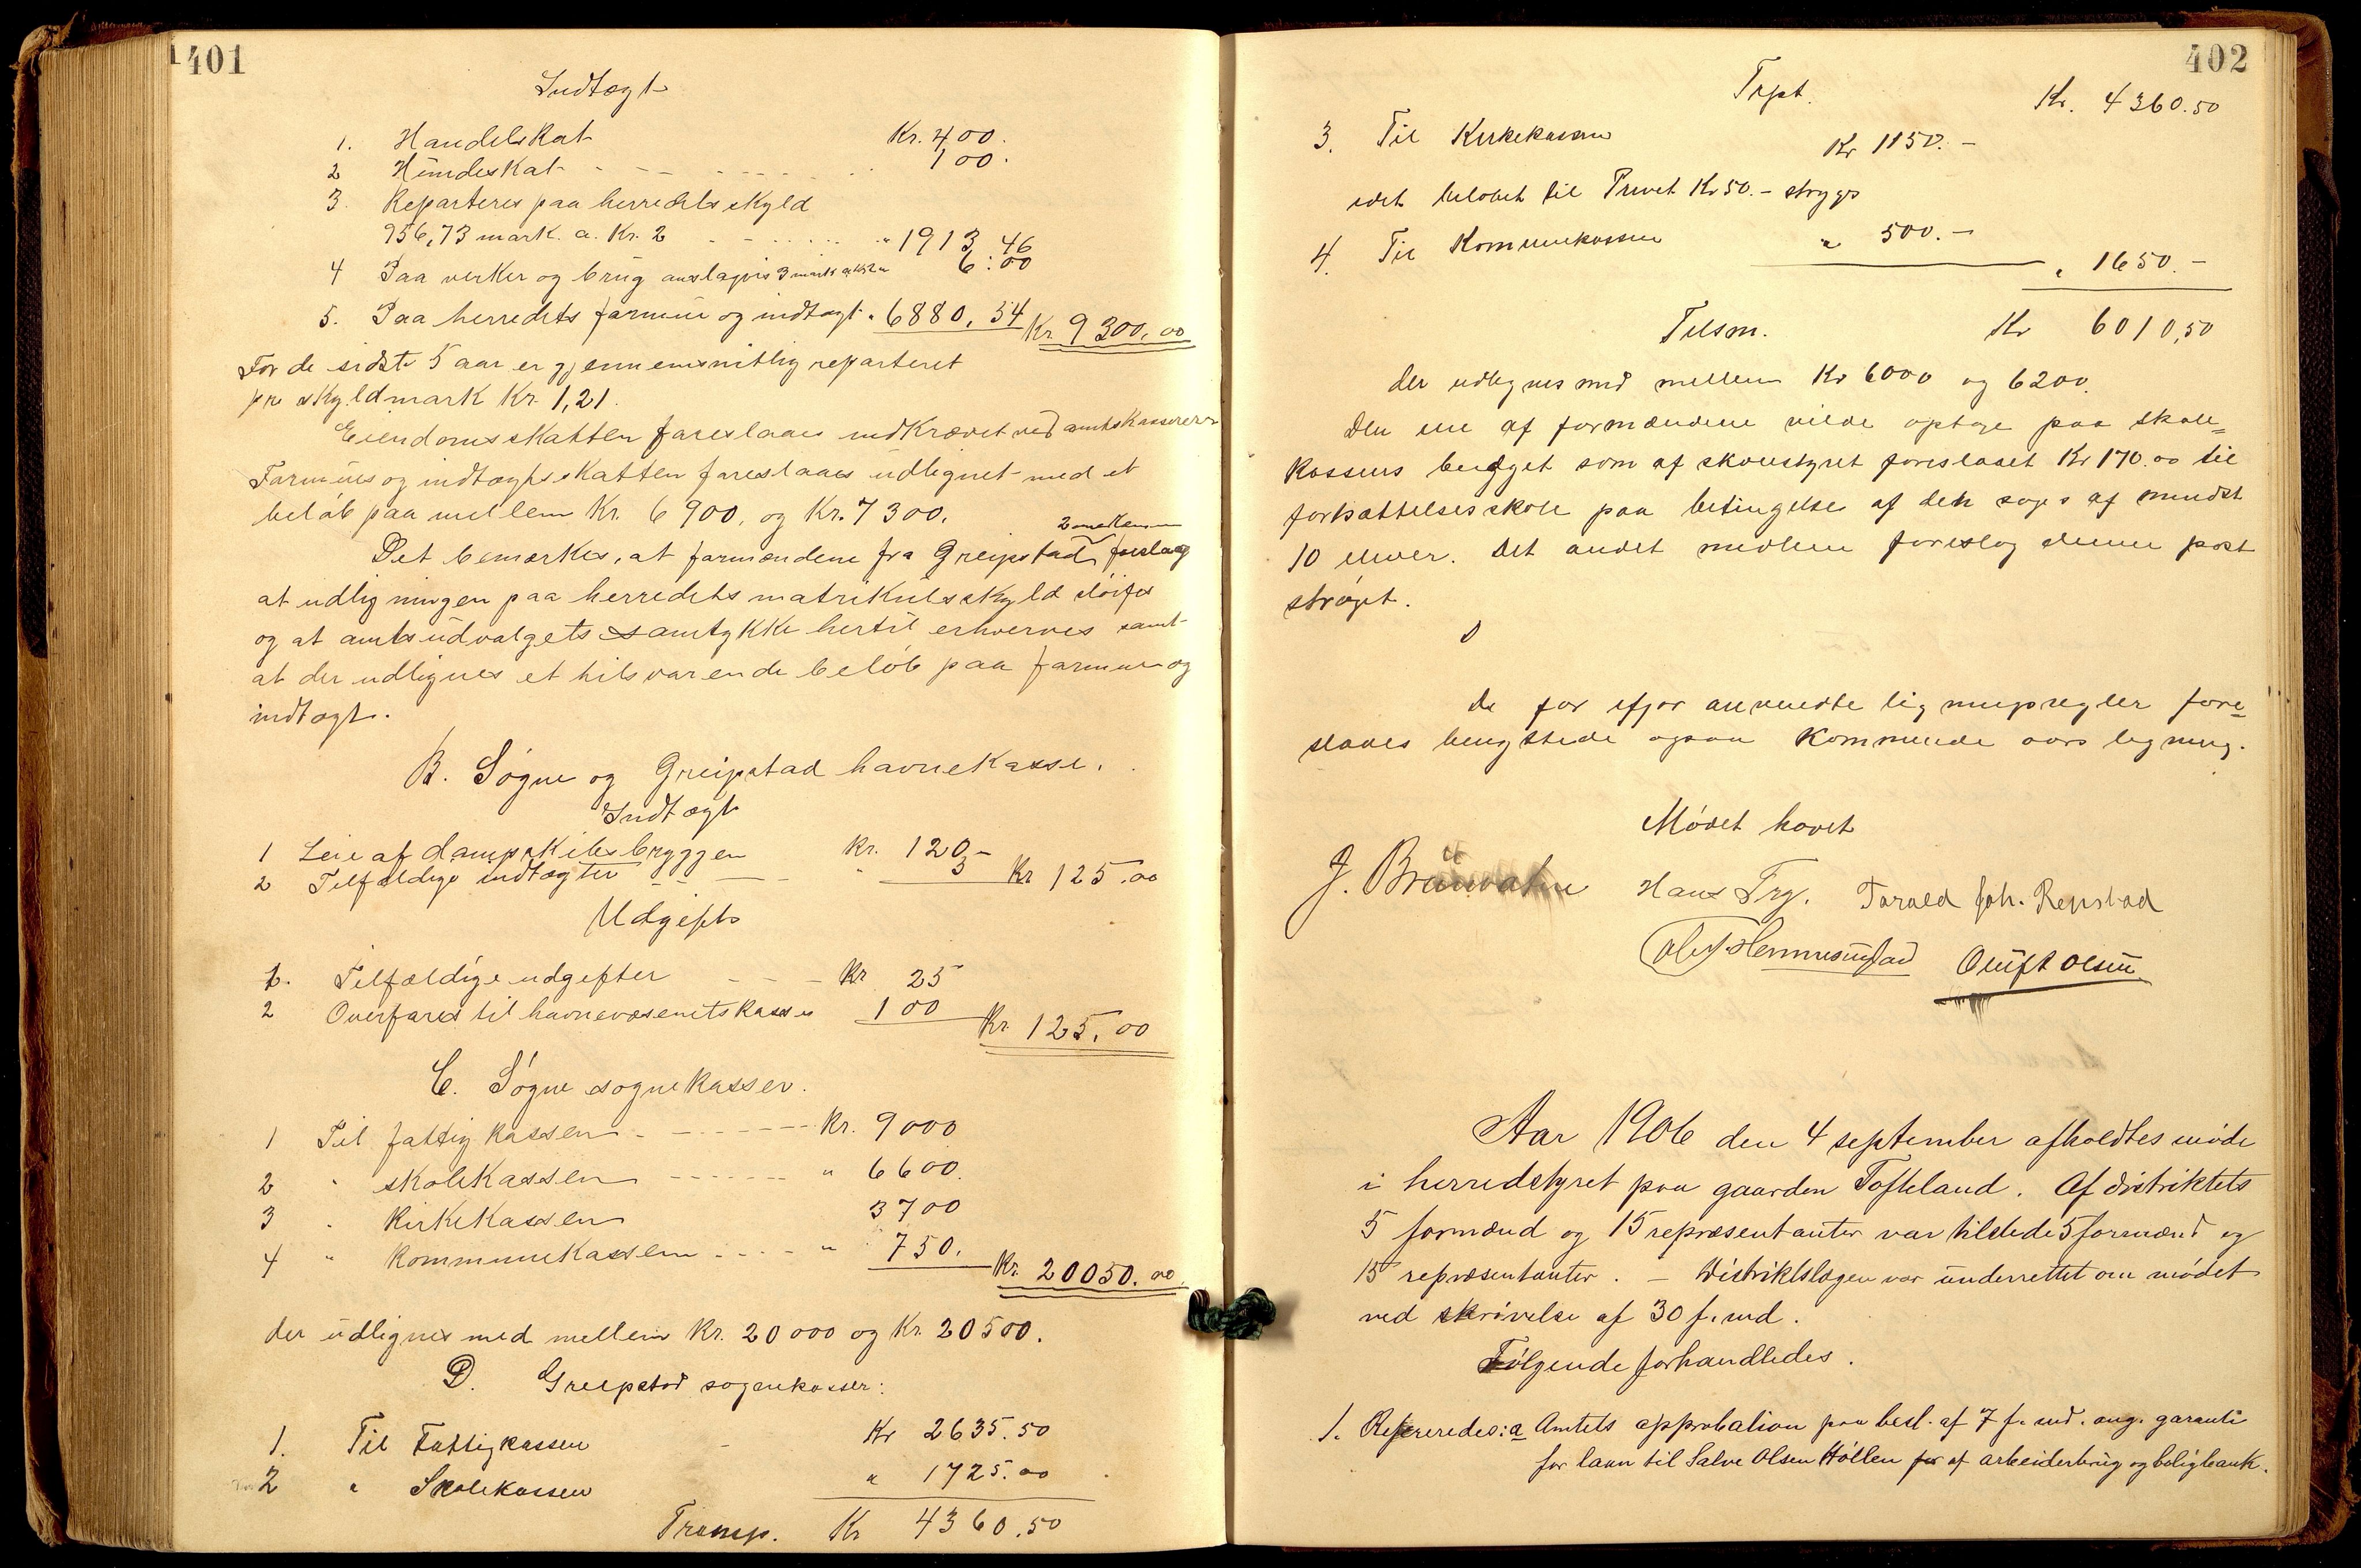 401
Indtægt
1. Handelskat Kr. 400.
2 Hundeskat - - - - - - - 100.
3. Reparteres paa herredets skyld
956,73 mark. a. Kr. 2 - - - - - " 1913,46
4 Paa verker og brug anslagvis 3 mark a kr 2 " 6:00
5. Paa herredets formue og indtægt " 6880,54 Kr. 9300,00
For de sidste 5 aar er gjennemsnitlig reparteret
pr skyldmark Kr. 1,21.
Eiendomsskatten foreslaaes indkrævet ved amtskasserern
Formues og indtægtsskatten foreslaaes udlignet med et
beløb paa mellem Kr. 6900, og Kr. 7300.
2 medlemmer
Det bemærkes, at formændene fra Greipstad foreslog
at udligningen paa herredets matrikulskyld sløifes
og at amtsudvalgets samtykke hertil erhverves samt
at der udlignes et tilsvarende beløb paa formue og
indtægt.
B. Søgne og Greipstad havnekasse.
Indtægt
1 Leie af dampskibsbryggen Kr. 120 -
2 Tilfældige indtægter - - - " 5 Kr 125.00
Udgift
1. Tilfældige udgifter - - - Kr 25
2 Overføres til havnevæsenetskasse 100 Kr 125.00
C. Søgne sognekasser.
1 Til fattigkassen - - - - - - Kr. 9000
2 " skolekassen - - - - - - " 6600.
3 " Kirkekassen 3700
4 " Kommunekassen - - - - " 750. Kr. 20050.00
der udlignes med mellem Kr. 20000 og Kr. 20500.
D. Greipstad sognekasser:
1. Til Fattigkassen - Kr 2635.50
2 " Skolekassen " 1725.00
Transp. Kr 4360.50
402
Trpt. Kr. 4360.50
3. Til Kirkekassen Kr 1150. -
idet beløbet til Privet Kr 50. - stryges
4. Til Kommunekassen " 500. - " 1650. -
Tilsm. Kr 6010,50
der udlignes med mellem Kr 6000 og 6200.
Den ene af formændene vilde optage paa skole=
kassens budget som af skolestyret foreslaaet Kr 170.00 til
fortsættelsesskole paa betingelse af den søges af mindst
10 elever. Det andet medlem foreslog denne post
strøget.
De for ifjor anvendte ligningsregler fore=
slaaes benyttede ogsaa Kommende aars ligning.
Mødet hævet
J. Brunvatne Hans Try. Torald Joh. Repstad
Ole J. Hemmesund Oluf T Olsen
Aar 1906 den 4 september afholdtes møde
i herredstyret paa gaarden Tofteland. Af distriktets
5 formænd og 15 repræsentanter var tilstede 5 formænd og
15 repræsentanter. - Distriktslægen var underrettet om mødet
ved skrivelse af 30 f. md.
Følgende forhandledes.
1. Refereredes: a Amtets approbation paa besl. af 7 f. md. ang. garanti
for laan til Salve Olsen Høllen for af arbeiderbrug og boligbank.